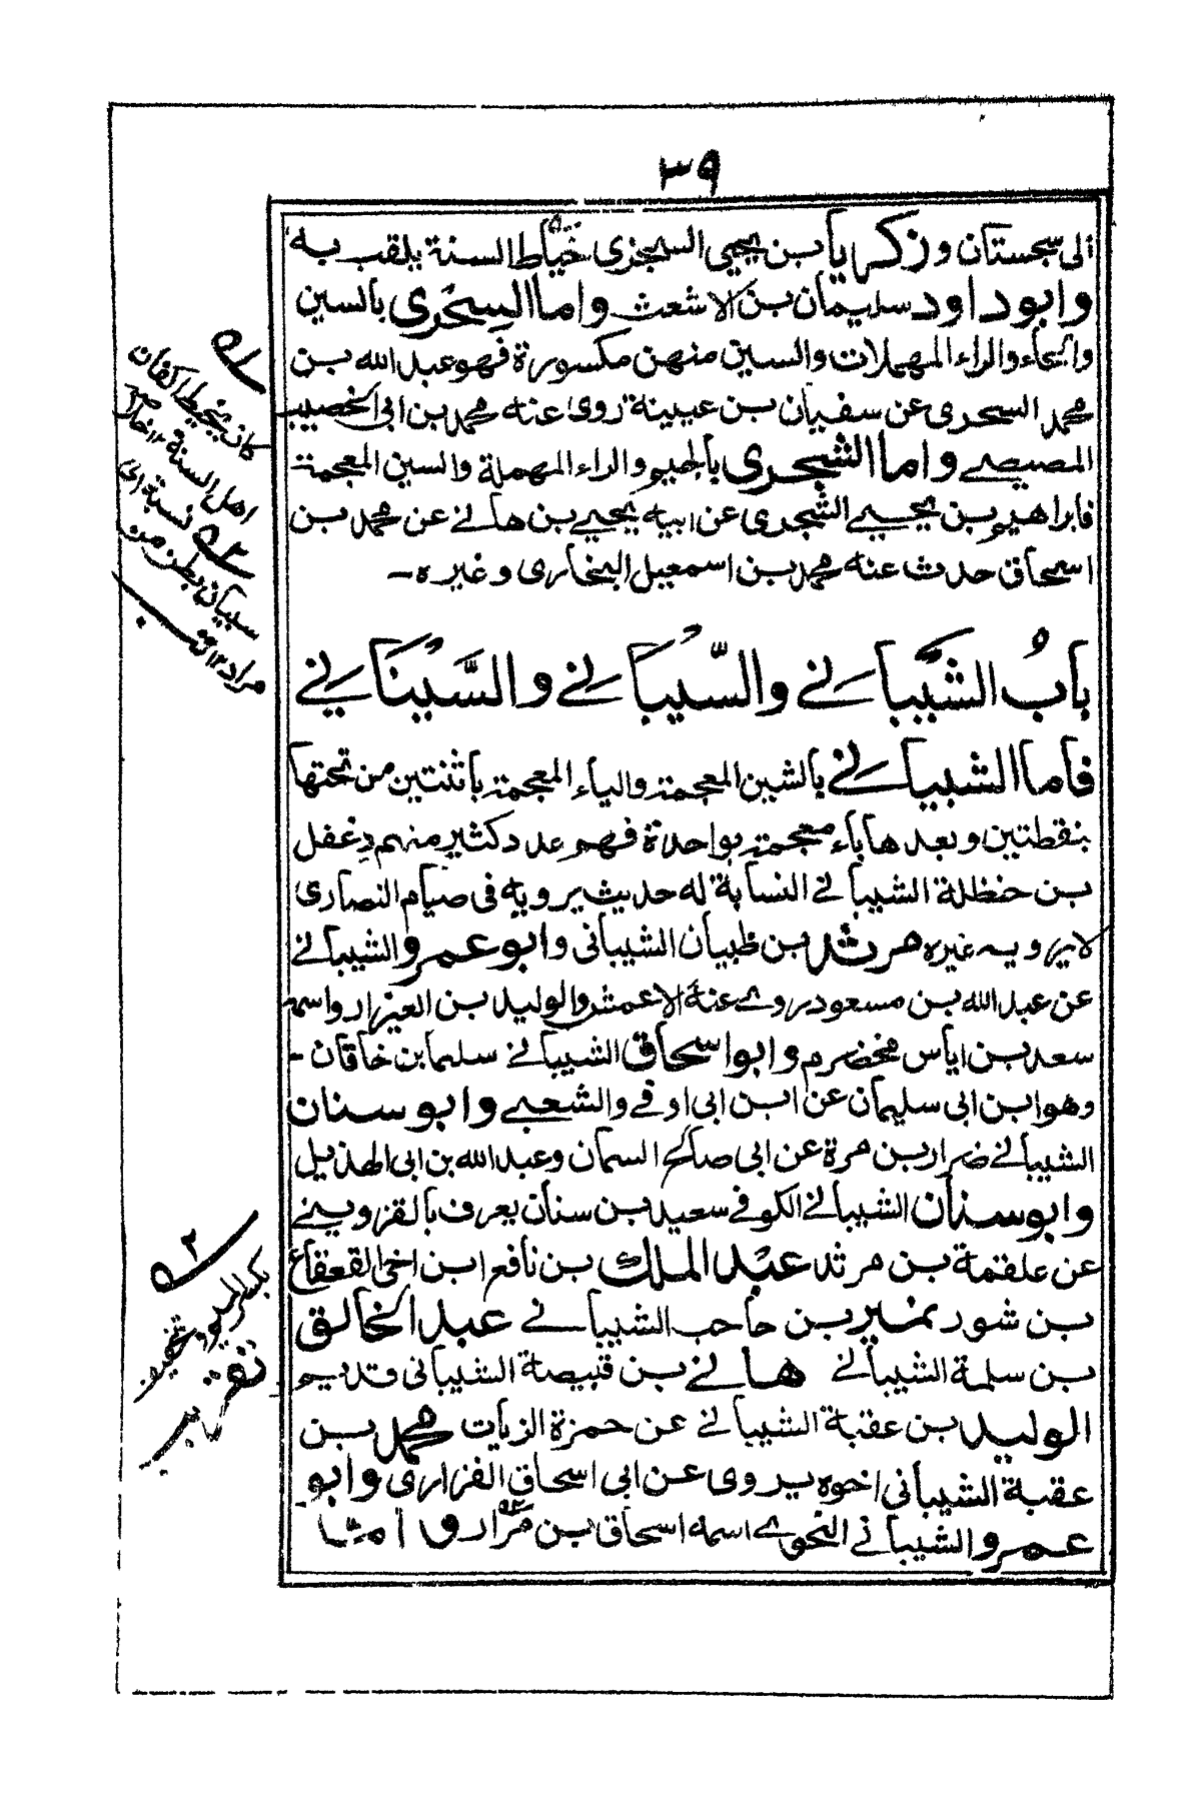 ٣٩
الى سجستان وزكريا بن يحيى السجزى خياط السنة يلقب به
وابو داود سليمان بن الاشعث واما السحرى بالسين
والحاء والراء المهملات والسين منهن مكسورة فهو عبد الله بن
محمد السحرى عن سفيان بن عيينة روى عنه محمد بن ابى الخصيب
المصيصے واما الشجرى بالجيم والراء المهملة والسين المعجمة
فابراهيم بن يحيى الشجرى عن ابيه يحيے بن هانے عن محمد بن
اسحاق حدث عنه محمد بن اسمعيل البخارى وغيره -
باب الشيبانے والسيبانے والسينانے
فاما الشيبانے بالشين المعجمة والياء المعجمة باثنتين من تحتها
بنقطتين وبعدها باء معجمة بواحدة فهم عدد كثير منهم دغفل
بن حنظلة الشيبانے النسابة له حديث يرويه فى صيام النصارى
لا يرويه غيره مرثد بن ظبيان الشيبانى وابو عمرو الشيبانے
عن عبد الله بن مسعود روے عنه الاعمش والوليد بن العيزار واسمه
سعد بن اياس مخضرم وابو اسحاق الشيبانے سليما بن خاقان -
وهو ابن ابى سليمان عن ابن ابى اوفے والشعبے وابو سنان
الشيبانے ضرار بن مرة عن ابى صالح السمان وعبد الله بن ابى الهذيل
وابو سنان الشيبانے الكوفے سعيد بن سنان يعرف بالقزوينے
عن علقمة بن مرثد عبد الملك بن نافع ابن اخى القعقاع
بن شور نمير بن حاجب الشيبانے عبد الخالق
بن سلمة الشيبانے هانے بن قبيصة الشيبانى قديم
الوليد بن عقبة الشيبانے عن حمزة الزيات محمد بن
عقبة الشيبانى اخوه يروى عن ابى اسحاق الفزارى وابو
عمرو الشيبانے النحوے اسمه اسحاق بن مرار و امشا
كان يخيط اكفان
اهل السنة ١٢
نسبة الى
سيبان بطن من
مراد ١٢
٢
بكسر الميم وتخفيف
تقريب